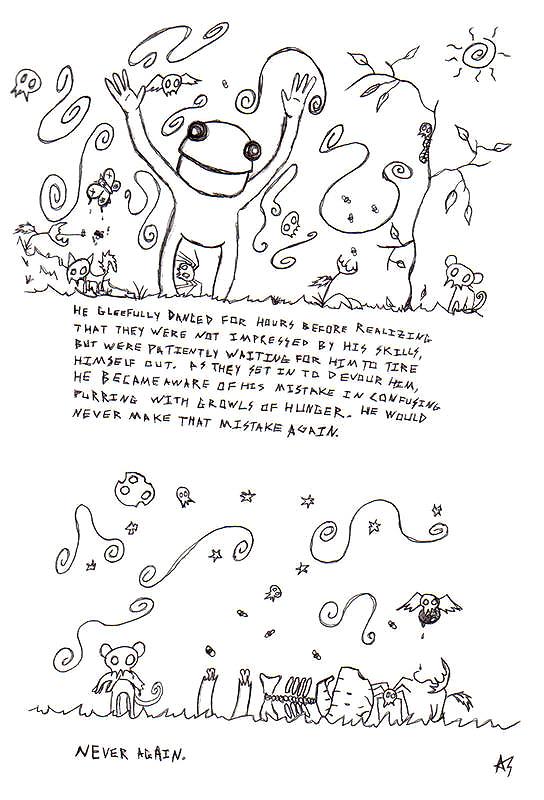 HE GLEEFULLY DANCED FOR HOURS BEFORE REALIZING
THAT THEY WERE NOT IMPRESSED BY HIS SKILLS,
BUT WERE PATIENTLY WAITING FOR HIM TO TIRE
HIMSELF OUT. AS THEY SET IN TO DEVOUR HIM,
HE BECAME AWARE OF HIS MISTAKE IN CONFUSING
PURRING WITH GROWLS OF HUNGER. HE WOULD
NEVER MAKE THAT MISTAKE AGAIN.
NEVER AGAIN.